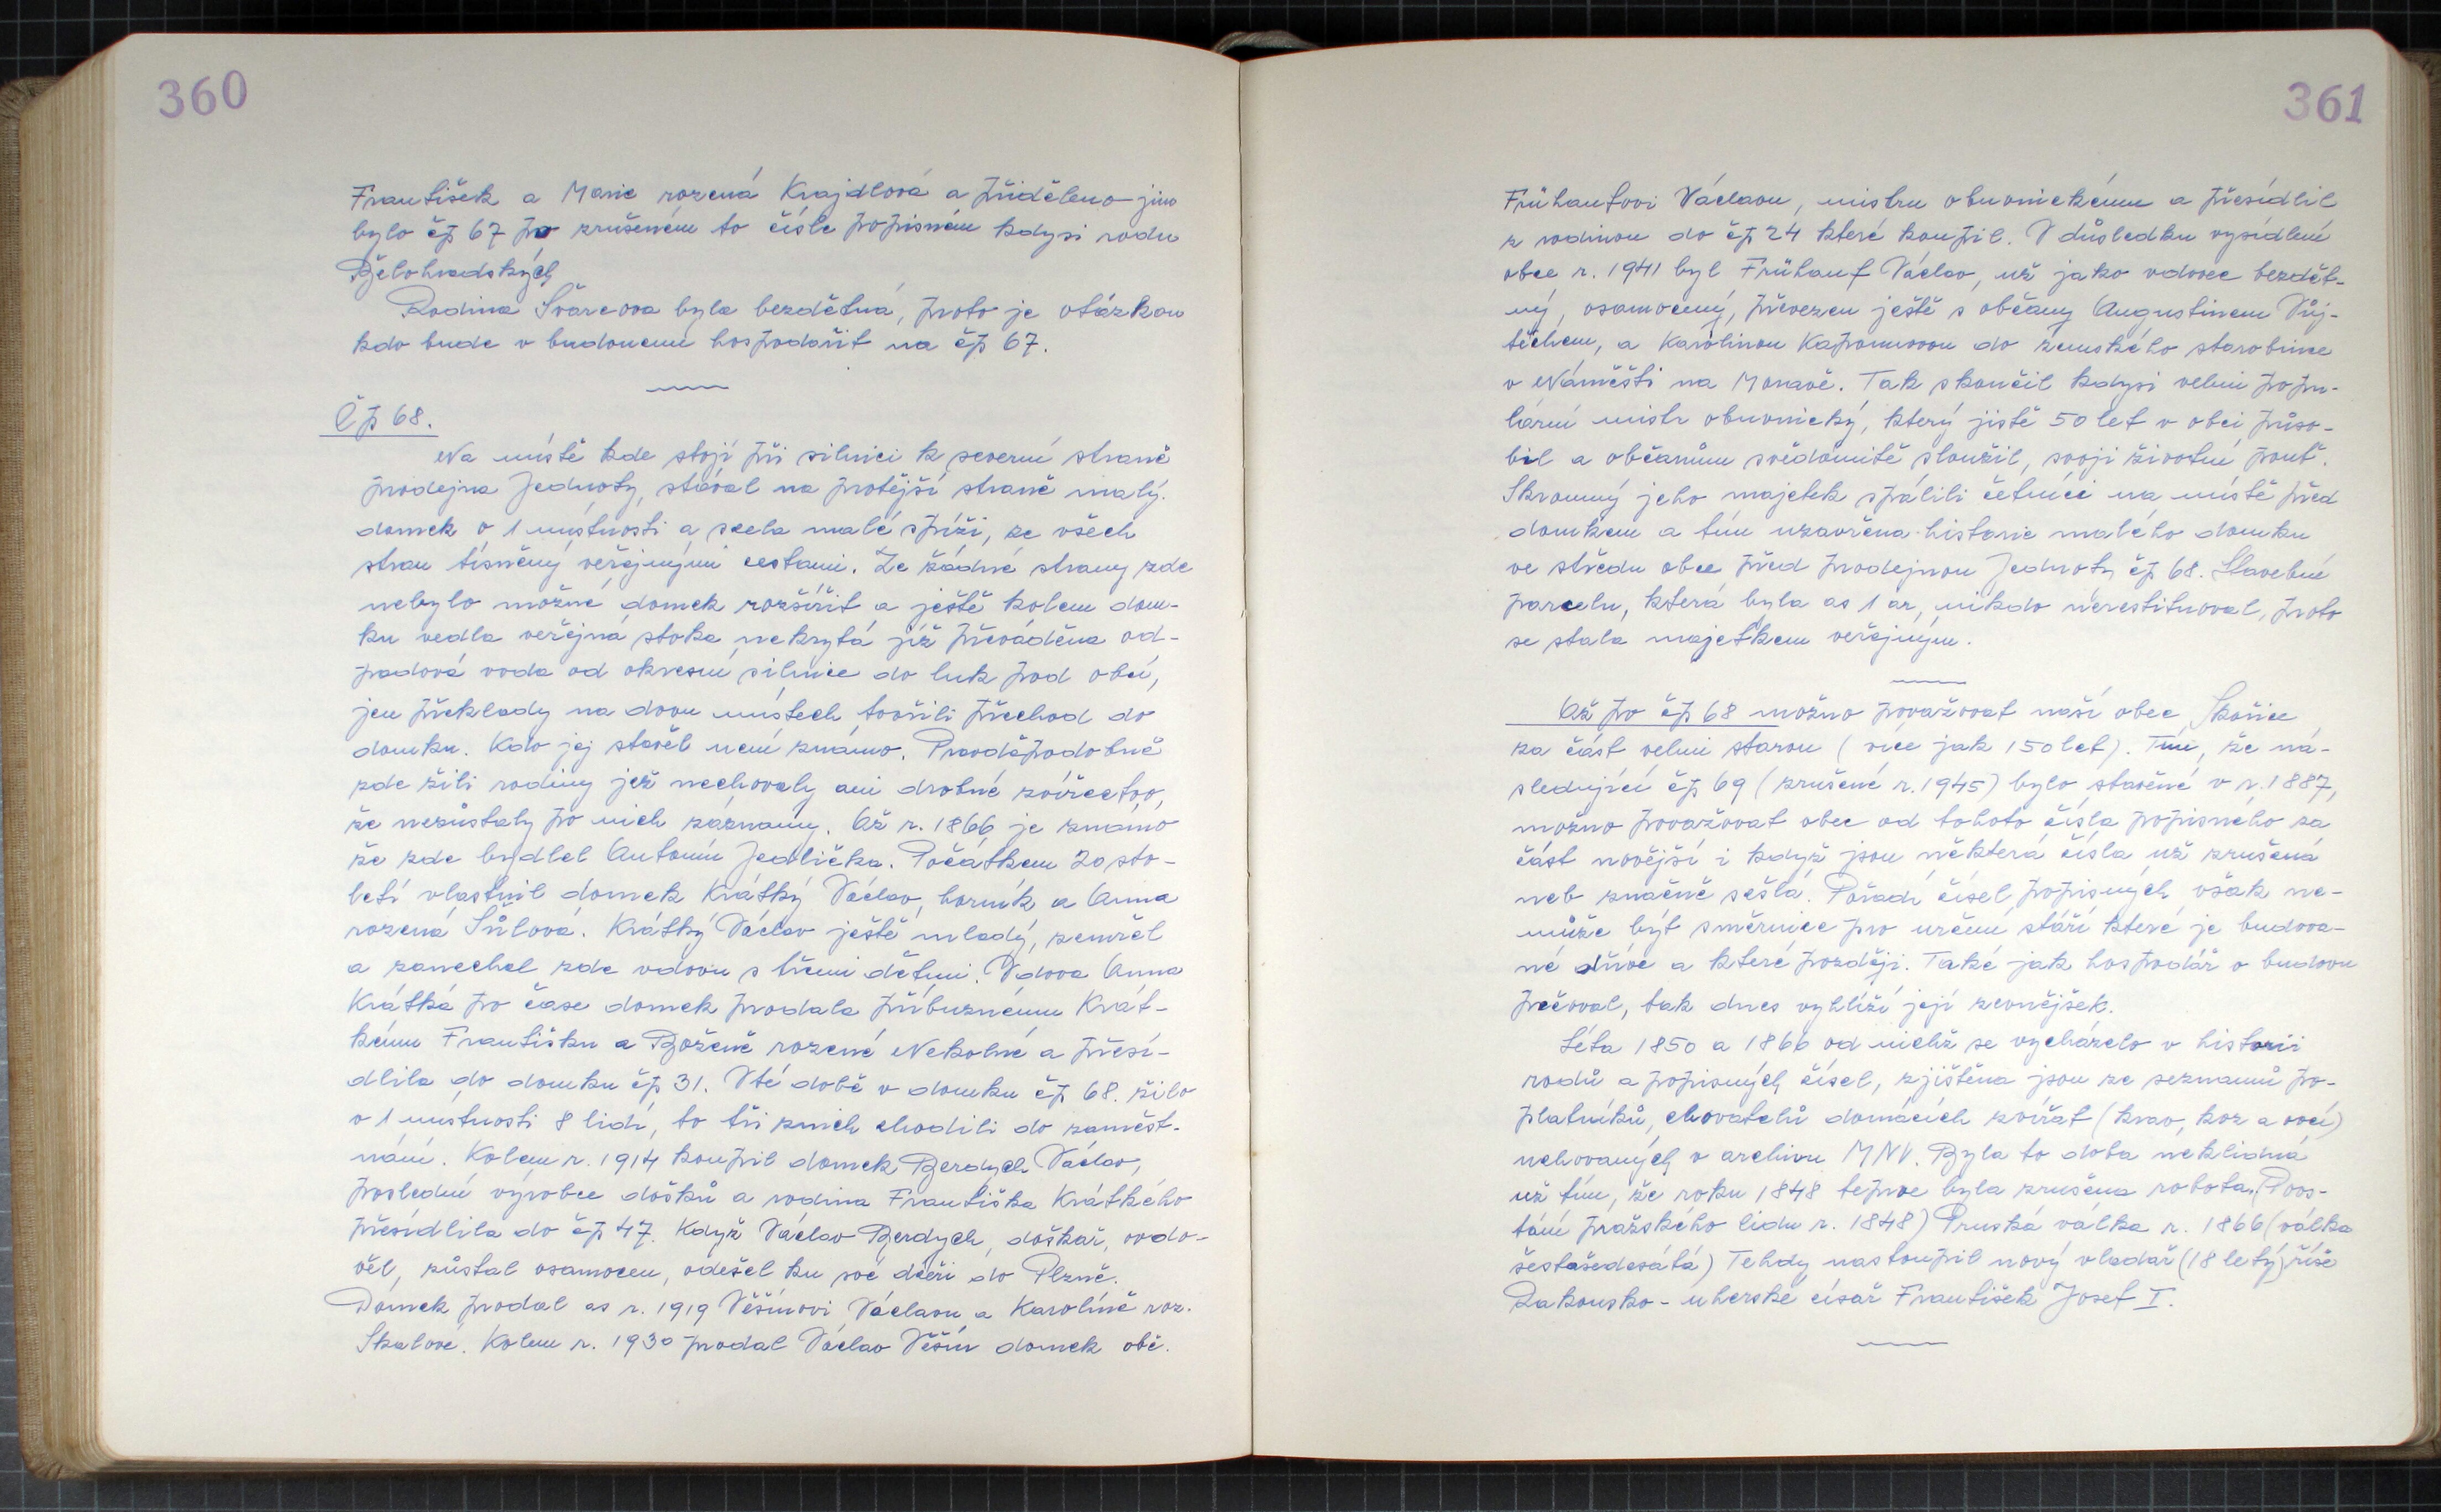 360
František a Marie rozená Krajdlová a přiděleno jim
bylo čp 67 po zrušeném to čísle popisném kdysi rodu
Bělohradských
Rodina Švarcova byla bezdětná, proto je otázkou
kdo bude v budoucnu hospodařit na čp 67.
Čp 68.
Na místě kde stojí při silnici k severní straně
prodejna Jednoty, stával na protější straně malý
domek o 1 místnosti a zcela malé spíži, ze všech
stran tísněný veřejnými cestami. Ze žádné strany zde
nebylo možné domek rozšířit a ještě kolem dom-
ku vedla veřejná stoka nekrytá jíž převáděna od-
padová voda od okresní silnice do luk pod obcí,
jen překlady na dvou místech tvořili přechod do
domku. Kdo jej stavěl není známo. Pravděpodobně
zde žili rodiny jež nechovaly ani drobné zvířectvo,
že nezůstaly po nich záznamy. Až r. 1866 je známo
že zde bydlel Antonín Jedlička. Počátkem 20 sto-
letí vlastnil domek Krátký Václav, horník a Anna
rozená Šůlová. Krátký Václav ještě mladý, zemřel
a zanechal zde vdovu s třemi dětmi. Vdova Anna
Krátká po čase domek prodala příbuznému Krát-
kému Františku a Boženě rozené Nekolné a přesí-
dlila do domku čp 31. Vté době v domku čp 68. žilo
v 1 mistnosti 8 lidí, to tři znich chodili do zaměst-
nání. Kolem r. 1914 koupil domek Berdych Václav,
poslední výrobce došků a rodina Františka Krátkého
přesídlila do čp 47. Když Václav Berdych, doškař, ovdo-
věl, zůstal osamocen, odešel ku své dceři do Plzně.
Domek prodal as r. 1919 Věšínovi Václavu a Karolíně roz.
Skalové. Kolem r. 1930 prodal Václav Věšín domek obč.
361
Frühaufovi Václavu, mistru obuvnickému a přesídlil
z rodinou do čp 24 které koupil. V důsledku vysídlení
obce r. 1941 byl Frühauf Václav, už jako vdovec bezdět-
ný, osamocený, převezen ještě s občany Augustinem Vůj-
těchem, a Karolinou Kapounovou do zemského starobince
v Náměšti na Moravě. Tak skončil kdysi velmi popu-
lární mistr obuvnický, který jistě 50 let v obci půso-
bil a občanům svědomitě sloužil, svoji životní pouť.
Skromný jeho majetek spálili četníci na místě před
domkem a tím uzavřena historie malého domku
ve středu obce před prodejnou Jednoty čp 68. Stavební
parcelu, která byla as 1 ar, nikdo nerestituoval, proto
se stala majetkem veřejným.
Až po čp 68 možno považovat naší obce Skořice
za část velmi starou (více jak 150 let). Tím, že ná-
sledující čp 69 (zrušené r. 1945) bylo stavěné v r. 1887,
možno považovat obec od tohoto čísla popisného za
část novější i když jsou některá čísla už zrušená
neb značně sešlá. Pořadí čísel popisných však ne-
může být směrnice pro určení stáří které je budova-
né dříve a které později. Také jak hospodář o budovu
pečoval, tak dnes vyhlíží její zevnějšek.
Léta 1850 a 1866 od nichž se vycházelo v historii
rodů a popisných čísel, zjištěna jsou ze seznamů po-
platníků, chovatelů domácích zvířat (krav, koz a ovcí)
uchovaných v archivu MNV. Byla to doba neklidná
už tím, že roku 1848 teprve byla zrušena robota. (Povs-
tání pražského lidu r. 1848) Pruská válka r. 1866 (válka
šestašedesátá) Tehdy nastoupil nový vladař (18 letý) říše
Rakousko-uherské císař František Josef I.